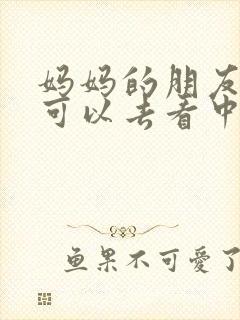 妈妈的朋友
可以去看中
鱼果不可爱了